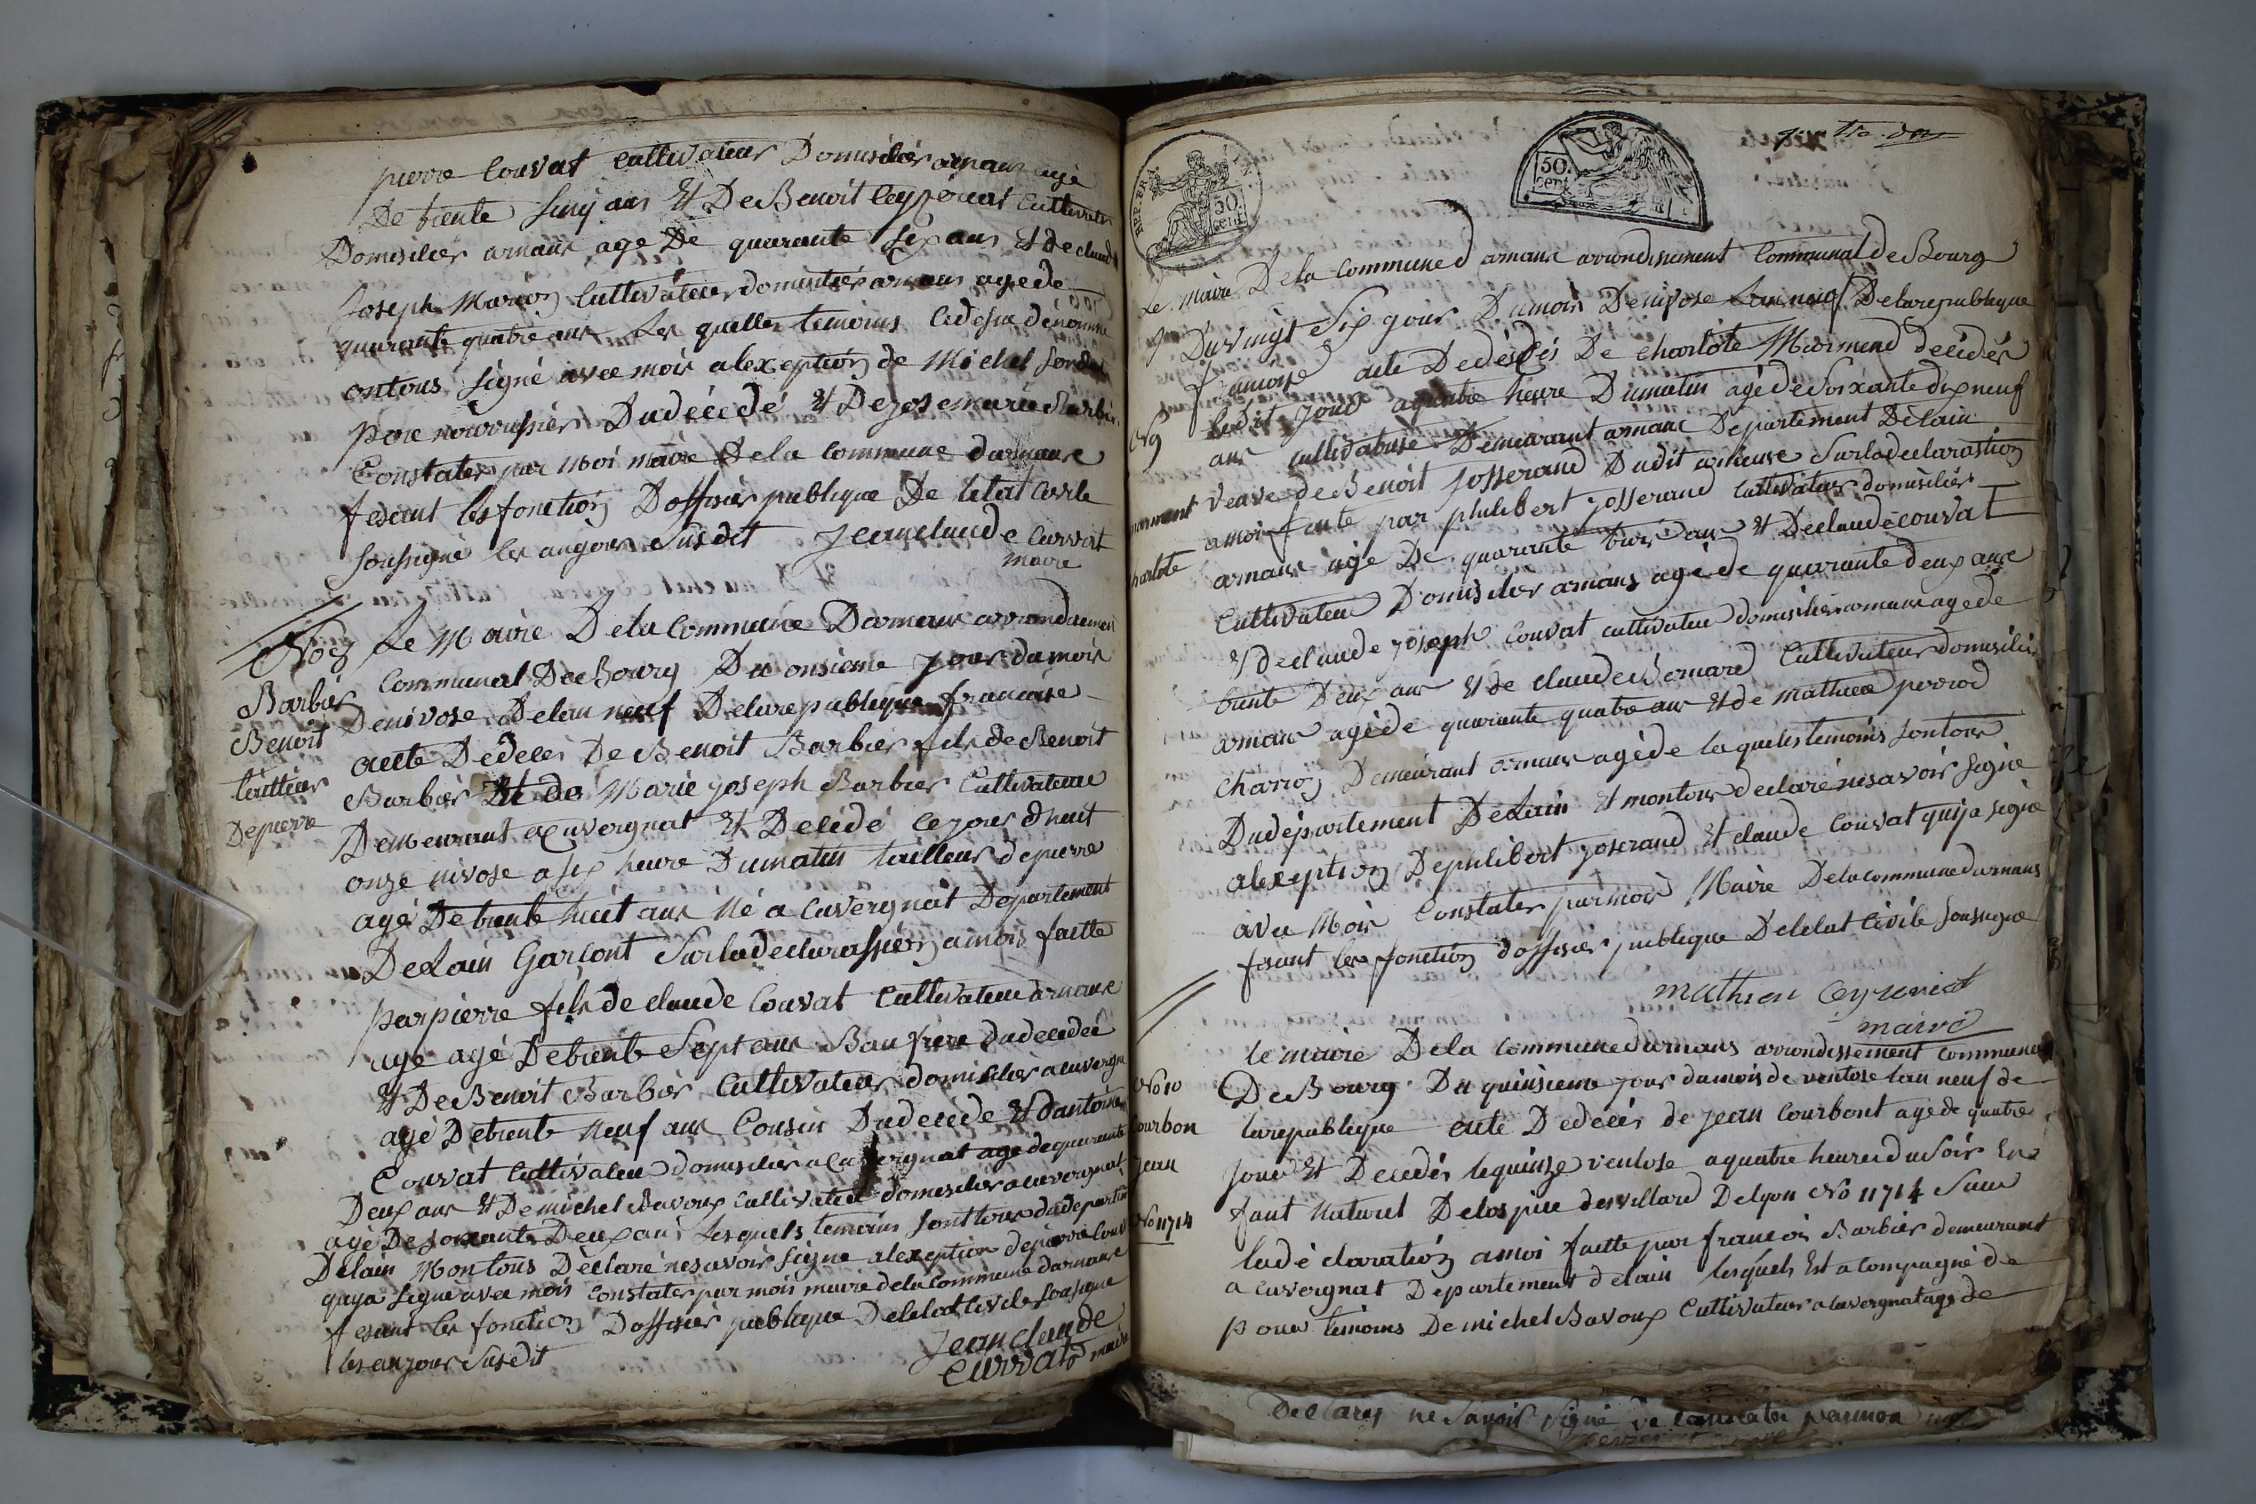 pierre Couvat Cultivateur Domisilier arnaux agé
De trente sinq ans Et De Benoit Ceyzeriat Cultivateur
Domisilier arnaux age De quarante six ans Et de claude
Joseph Marion Cultivateur domisilier arnaux age de
quarante quatre ans Les quelles temoins Cidesu dénommé
ontous signé avec moi alexeption de Michel
pere nourrissier Dudécédé Et De josemarie Barbier
Constater par Moi maire De la Commune darnaux
fesant les fonction D'offisier publique De letat Civile
soussigné les an jour Susdit Jeanclaude Curvat
maire
No 8 Le Maire De la Commune Darnaux arrondisement
Barbier Communal De Bourg Du onsieme jour du mois
Benoit Denivose Delan neuf Delarepublique francaise
tailleur acte De déces De Benoit Barbier fils de Benoit
Depierre Barbier Et de Marie joseph Barbier Cultivateur
Demeurant a Cuvergnat Et Décédé le jour dhuit
onze nivose a six heure Dumatin tailleur depierre
agé De trente huit ans Né a Cuvergnat Departement
Delain Garsont Surladeclarassion amoi faitte
par pierre fils de claude Couvat Cultivateur darnaux
age agé De trente Sept ans Baufrere dudecedée
Et De Benoit Barbier Cultivateur domisilier a cuvergnat
agé De trente Neuf ans Cousin Dudecédé Et dantoine
Couvat Cultivateur domisilier a Cuvergnat agé de quarante
Deux ans Et De michel Bavoux Cultivateur domisilier a cuvergnat
agé De soixante Deux ans Lesquels temoins sont tous du departement
Delain Mon tous Déclaré nesavoir signe alexeption depierre Couvat
quya signé avec moi Constater par moi maire dela Commune darnaux
fesant les fonction Doffisier publique Deletat Civile sousigné
les an jour Susdit Jean claude
Curvat maire
50
cent.
REP. FRA.
50
cent.
Le Maire De la Commune d arnaux arrondisement Communal de Bourg
Du vingt six jour Dumois Denivose Lan neuf Delarepublique
No 9 francoise acte De décés De charlote Marmend décédés
ledit jour a quatre heure Dumatin agé de Soixante dix neuf
ans cultivatrise Demeurant arnaux Departement Delain
marment Veuve de Benoit Josserand Dudit arnieuse Surladeclarastion
charlote amoi faite par philibert josserand Cultivateur domisilier
arnaux agé De quarante trois ans Et De claude couvat
Cultivateur Domisilier arnaux agé de quarante deux ans
Et de claude joseph Couvat cultivateur domisilier arnaux age de
trente Deux ans Et de claude Cultivateur domisilier
arnaux agé de quarante quatre ans Et de mathieu perrod
charron Demeurant arnaux agé de lequelles temoins sontous
Dudépartement Delain Et mon tous declaré nesavoir signé
alexeption De philibert joserand Et claude Couvat quija signé
avec Moi Constater par moi Maire De la commune darnaux
fesant les fonction doffisier publique Deletat Civile soussigné
mathieu Ceyzeriat
maire
le maire De la commune d arnaux arrondissement communal
No 10 De Bourg Du quinsieme jour du mois de ventose lan neuf de
Courbon larepublique acte De déces de jean Courbont age de quatre
jean jour Et Decedér le quinze ventose a quatre heures du soir En
No 11714 fant Naturel De lospice desvillard Delyon No 11714 Sur
ladé claration amoi faitte par francois Barbier demeurant
a cuvergnat Departement delain lesquels Est a compagné de
pour temoins De michel Bavoux Cultivateur a cuvergnat age de
Declarez ne Savoir Signé